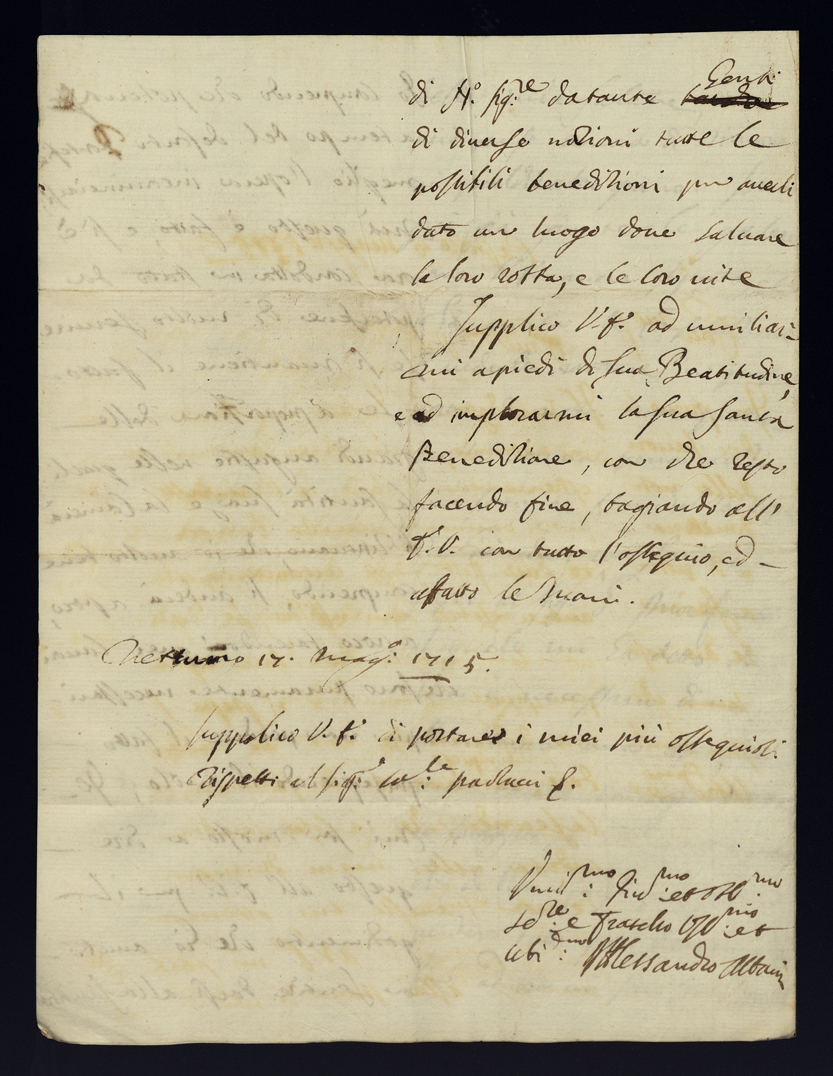 di N.o Sig:re da tante Genti
di diverse nazioni tutte le
possibili benedizioni per averli
dato un luogo dove salvare
la loro robba, e le loro vite
Supplico V. E. ad umiliar-
mi a piedi di Sua Beatitudine,
e ad implorarmi la sua Santa
Benedizione, con che resto
facendo fine, bagiando all'
E. V. con tutto l'ossequio, ed
affetto le Mani.
Nettuno 17. Mag.o 1715.
Supplico V. E. di portare i miei più ossequiosi
rispetti al Sig.r Card:le Paolucci
Umil:mo et
Se:re e Fratello et
Alessandro Albani